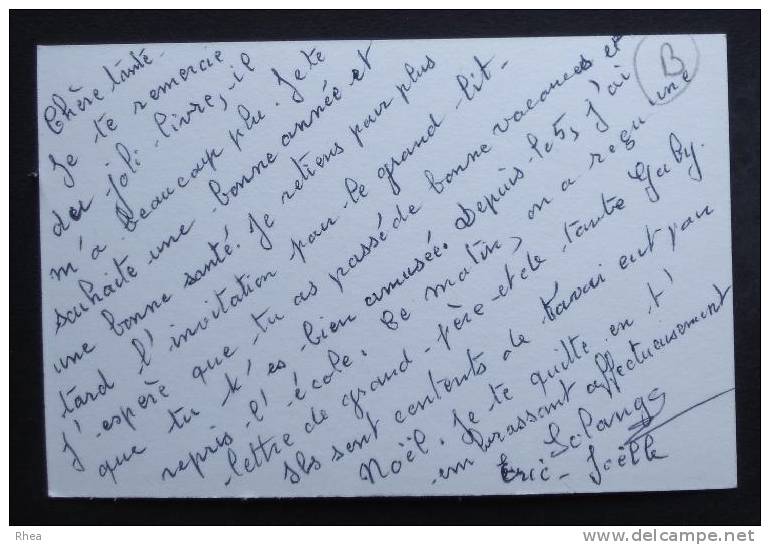 Chère tante-
Je te remercie
du joli livre, il
m'a beaucoup plu. Je te
souhaite une bonne année et
une bonne santé. Je retiens pour plus
tard l'invitation pour le grand lit-
J'espère que tu as passé de bonne vacances et
que tu t'es bien amusée. Depuis le 5, j'ai
repris l'école. Ce matin, on a reçu une
lettre de grand-père et de tante Gaby.
Ils sont contents de t'avoir eut par
Noël. Je te quitte en t'
embrassant affectueusement
Solange
Eric - Joëlle
B
Rhea
delcampe.net